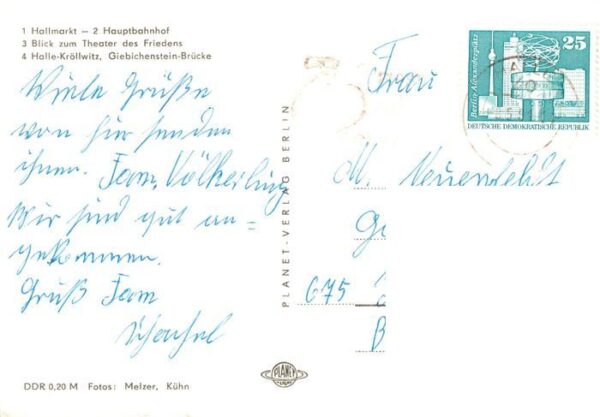 1 Hallmarkt – 2 Hauptbahnhof
3 Blick zum Theater des Friedens
4 Halle-Kröllwitz, Giebichenstein-Brücke
Viele Grüße
von hir senden
ihnen. Fam. Völkerling
Wir sind gut an=
gekommen.
Gruß Fam
PLANET-VERLAG BERLIN
Frau
M.
675
B
25
Berlin-Alexanderplatz
DEUTSCHE DEMOKRATISCHE REPUBLIK
PLANET
DDR 0,20 M Fotos: Melzer, Kühn